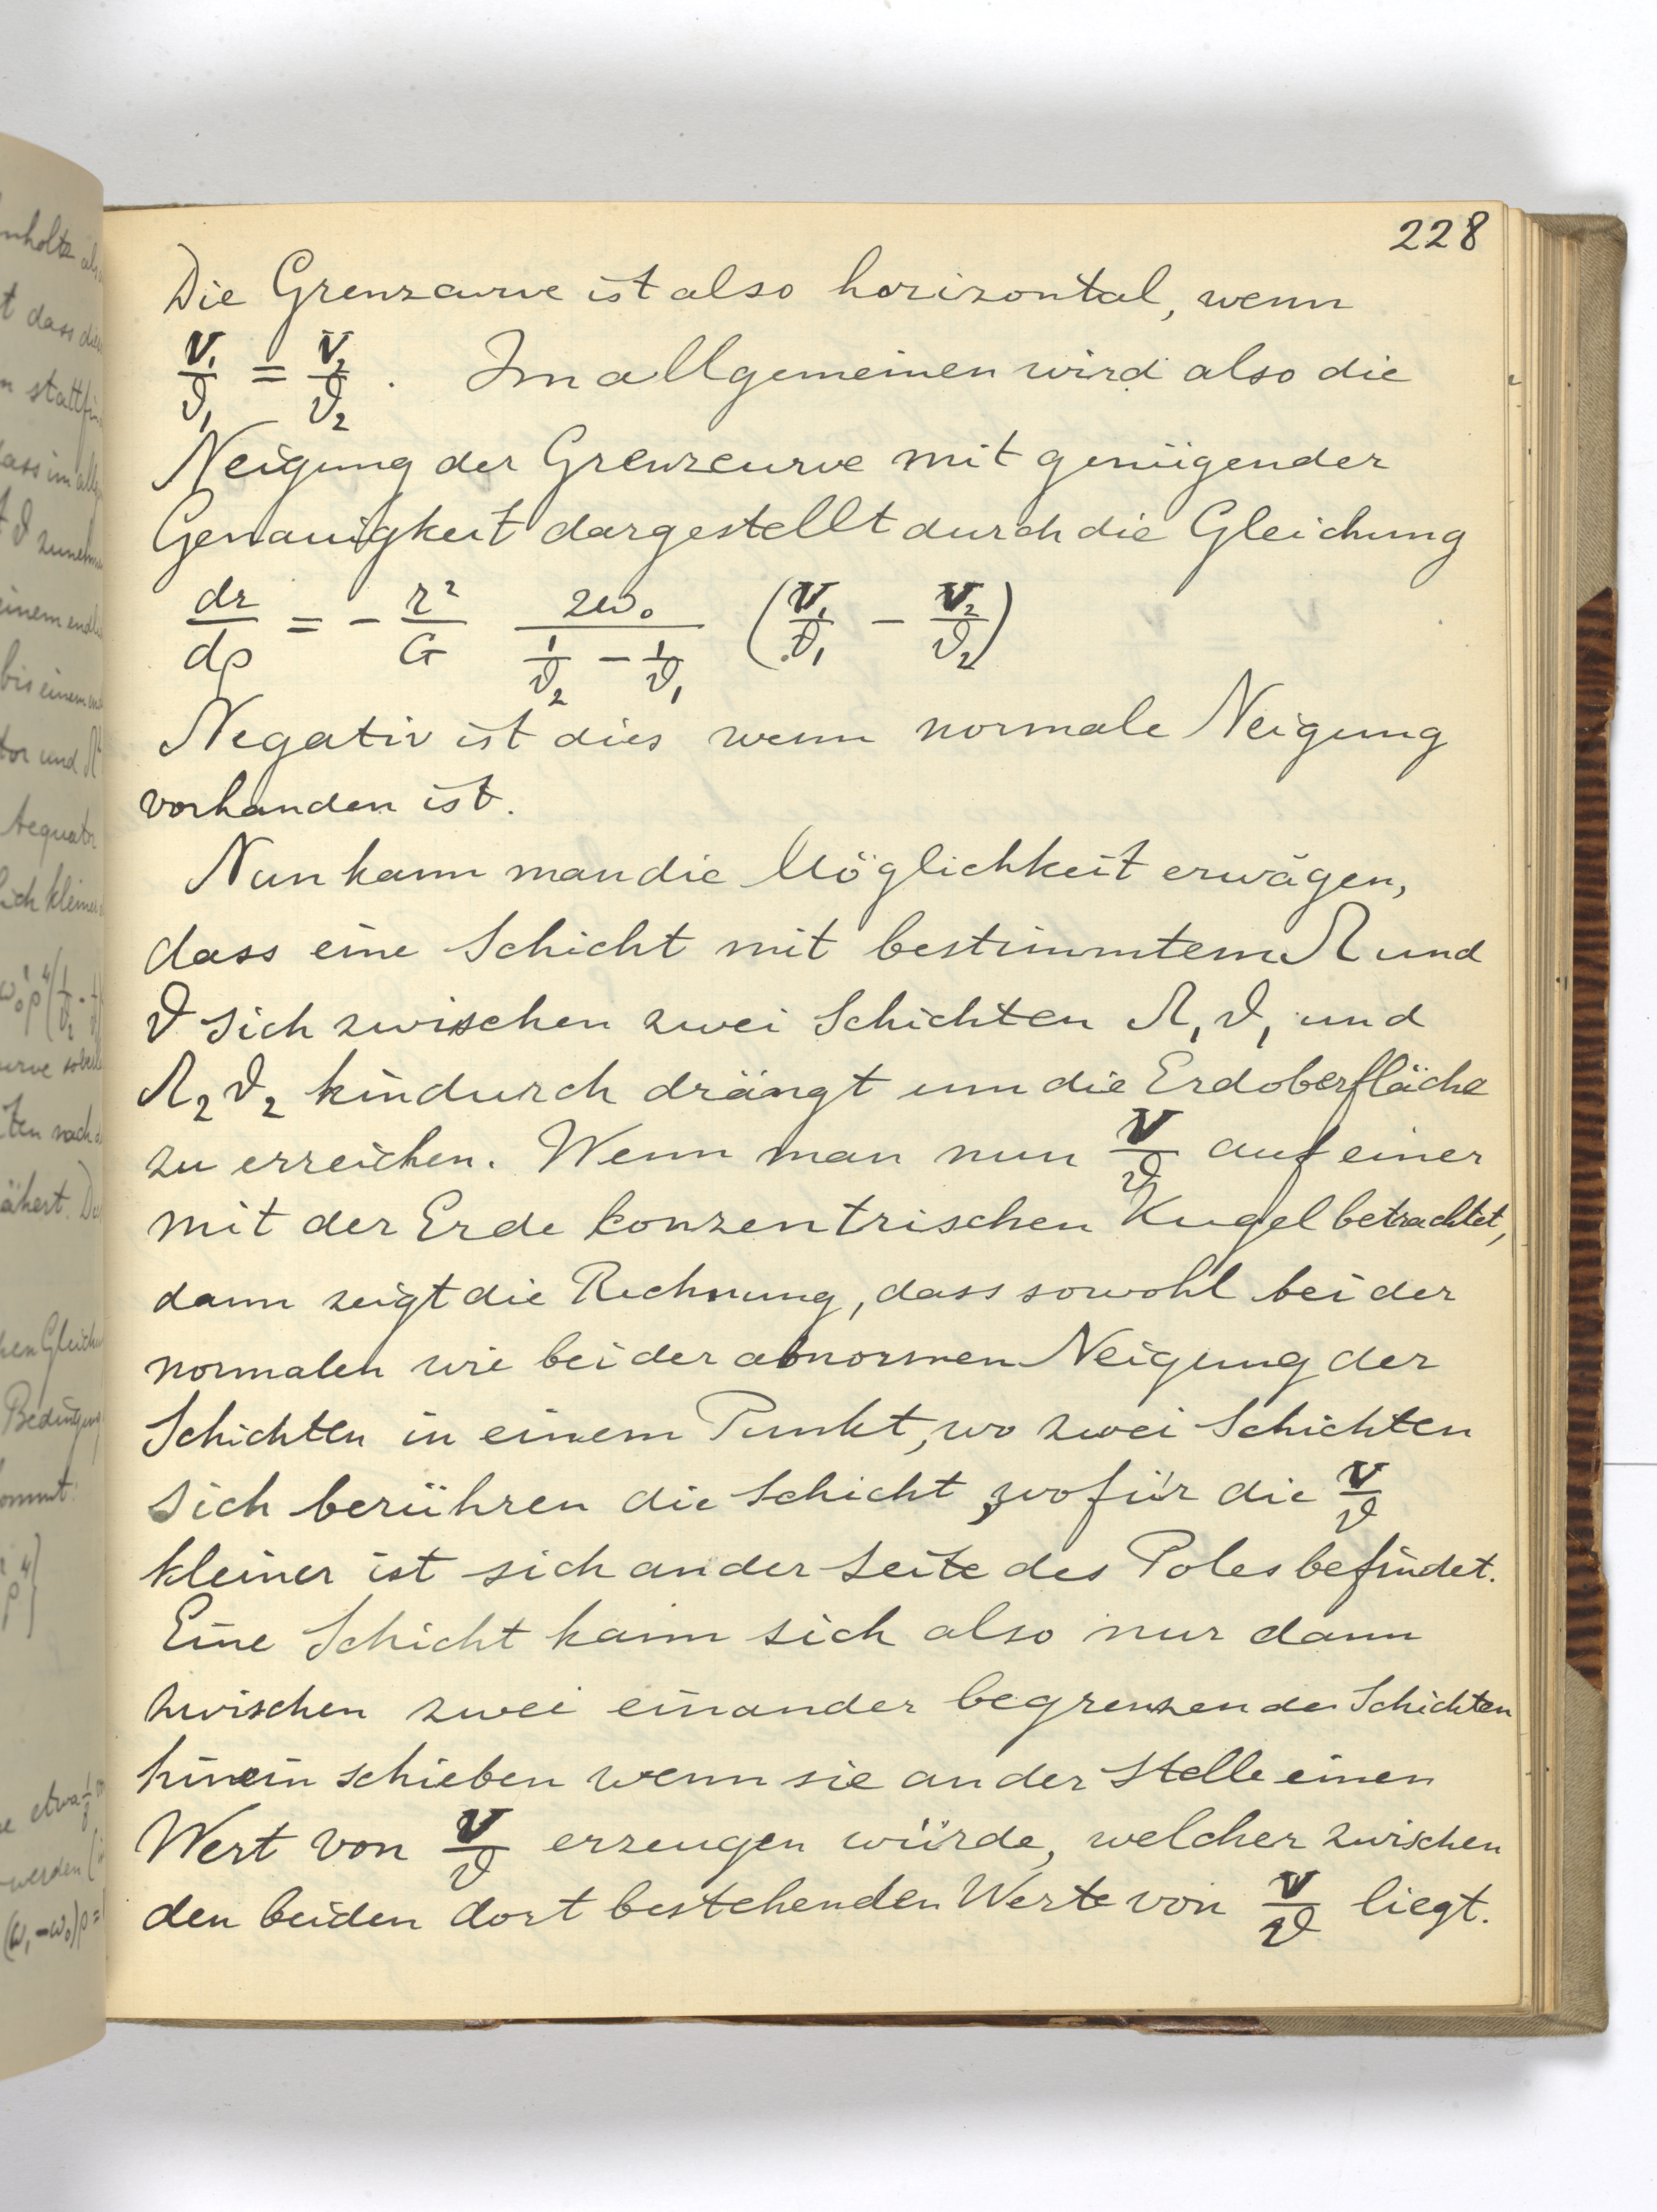 228
Die Grenzcurve ist also horizontal, wenn
V₁/ϑ₁ = V₂/ϑ₂ . Im allgemeinen wird also die
Neigung der Grenzcurve mit genügender
Genauigkeit dargestellt durch die Gleichung
dr/dρ = - r²/G 2ω₀/(1/ϑ₂ - 1/ϑ₁) (V₁/ϑ₁ - V₂/ϑ₂)
Negativ ist dies wenn normale Neigung
vorhanden ist.
Nun kann man die Möglichkeit erwägen,
dass eine Schicht mit bestimmtem Ω und
ϑ sich zwischen zwei Schichten Ω₁ ϑ₁ und
Ω₂ ϑ₂ hindurch drängt um die Erdoberfläche
zu erreichen. Wenn man nun V/ϑ auf einer
mit der Erde konzentrischen Kugel betrachtet,
dann zeigt die Rechnung, dass sowohl bei der
normalen wie bei der abnormen Neigung der
Schichten in einem Punkt, wo zwei Schichten
sich berühren die Schicht, wofür die V/ϑ
kleiner ist sich an der Seite des Poles befindet.
Eine Schicht kann sich also nur dann
zwischen zwei einander begrenzende Schichten
hinein schieben wenn sie an der Stelle einen
Wert von V/ϑ erzeugen würde, welcher zwischen
den beiden dort bestehenden Werte von V/ϑ liegt.